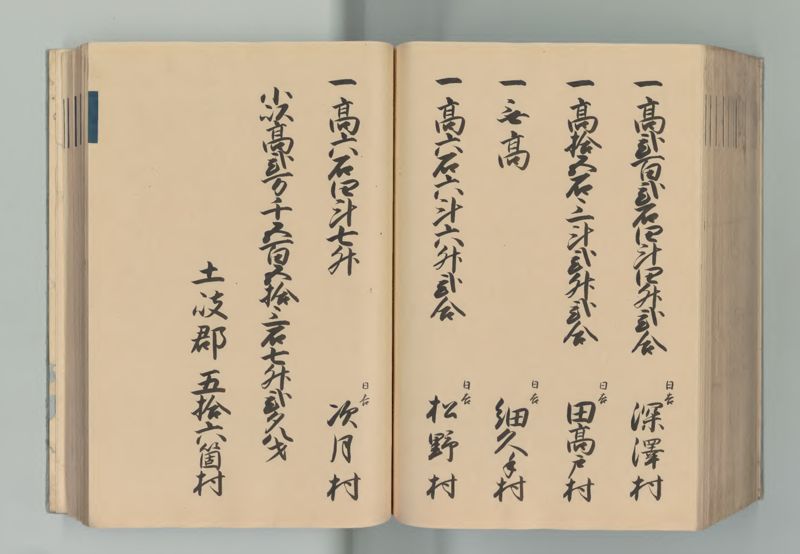 一高弐百弐石四斗四升弐合
同台 深澤村
一高拾五石三斗弐升弐合
同台 田高戸村
一無高
同台 細久手村
一高六石六斗六升弐合
同台 松野村
一高六石四斗七升
同台 次月村
高弐万千五百五拾三石七升弐夕八才
土岐郡 五拾六箇村